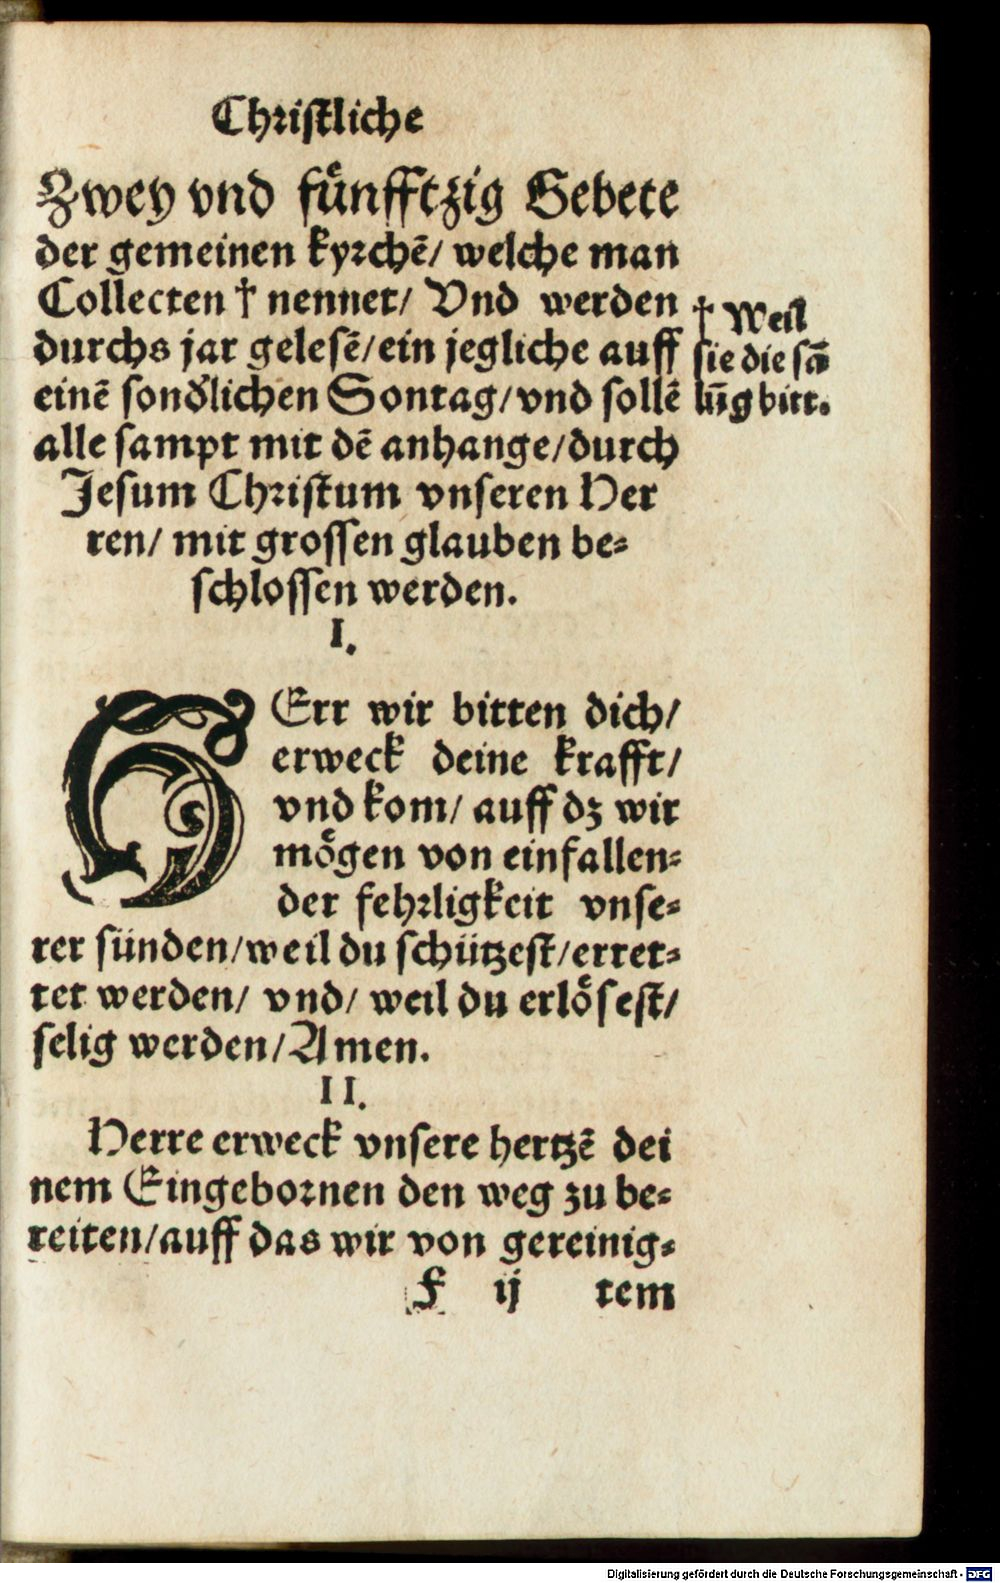 Christliche
Zwey vnd fuͤnfftzig Gebete
der gemeinen kyrchē/ welche man
Collecten † nennet/ Vnd werden
durchs jar gelesē/ein jegliche auff
einē sondꝰlichen Sontag/vnd sollē
alle sampt mit dē anhange/durch
Jesum Christum vnseren Her
ren/ mit grossen glauben be⸗
schlossen werden.
† Weil
sie die sā
lūg bitt.
I.
HErr wir bitten dich/
erweck deine krafft/
vnd kom/ auff dz wir
moͤgen von einfallen⸗
der fehrligkeit vnse⸗
rer sünden/weil du schützest/erret⸗
tet werden/ vnd/ weil du erloͤsest/
selig werden/Amen.
II.
Herre erweck vnsere hertzē dei
nem Eingebornen den weg zu be⸗
reiten/auff das wir von gereinig⸗
F ij tem
Digitalisierung gefördert durch die Deutsche Forschungsgemeinschaft - DFG